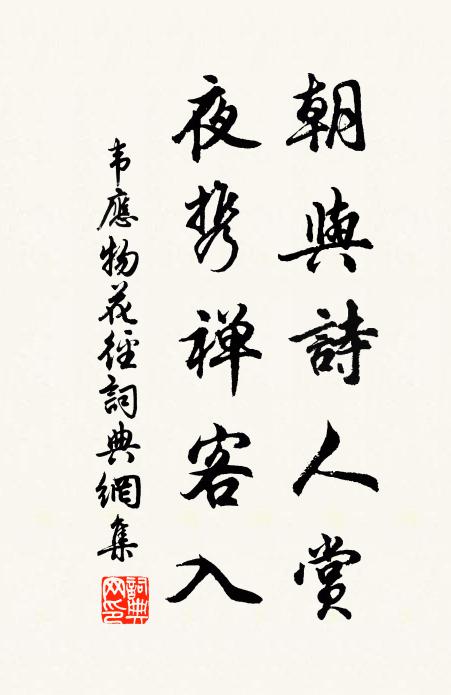 朝與詩人賞
夜携禅客入
韦應物花徑詞典網集
詞典网印